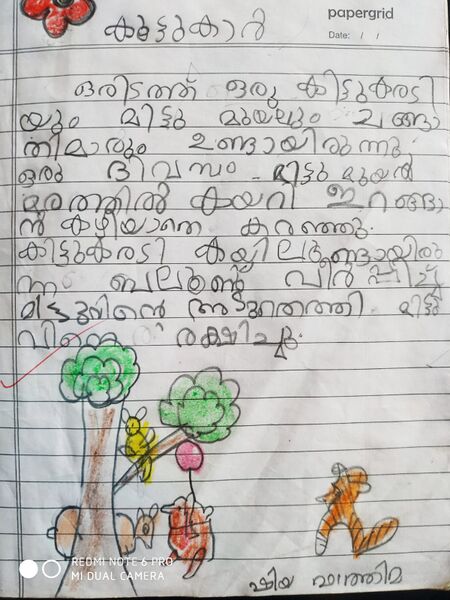 കൂട്ടുകാർ
papergrid
Date: / /
ഒരിടത്ത് ഒരു കിട്ടുകരടി
യും മിട്ടു മുയലും ചങ്ങാ
തിമാരും ഉണ്ടായിരുന്നു
ഒരു ദിവസം മിട്ടു മുയൽ
മരത്തിൽ കയറി ഇറങ്ങാ
ൻ കഴിയാതെ കരഞ്ഞു.
കിട്ടുകരടി കയ്യിലുണ്ടായിരു
ന്ന ബലൂൺ വീർപ്പിച്ച്
മിട്ടുവിന്റെ അടുത്തെത്തി മിട്ടു
വിനെ രക്ഷിച്ചു.
REDMI NOTE 6 PRO
MI DUAL CAMERA
ഫാത്തിമ